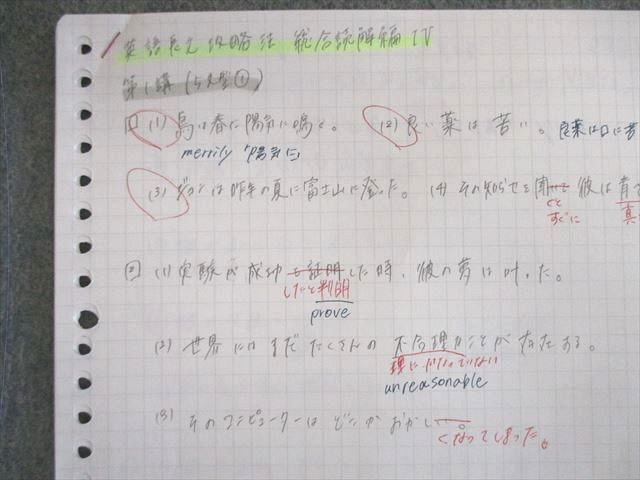 英語長文攻略法 総合読解編 IV
第1講(5文型①)
1 (1) 鳥は春に陽気に鳴く。 (2) 良い薬は苦い。 良薬は口に苦
merrily「陽気に」
(3) ジョンは昨年の夏に富士山に登った。 (4) その知らせを聞 彼は青
くと 真
すぐに
2 (1) 実験が成功と証明した時、彼の夢は叶った。
したと判明
prove
(2) 世界にはまだたくさんの不合理なことが存在する。
理にかなっていない
unreasonable
(3) そのコンピューターはどこかおかしい
くなってしまった。